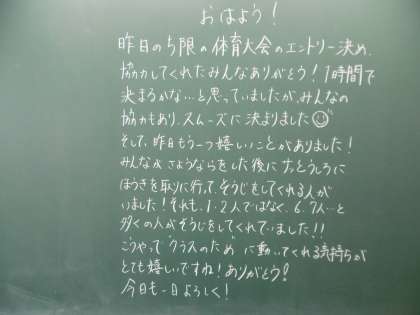 おはよう！
昨日の5限の体育大会のエントリー決め、
協力してくれたみんなありがとう！1時間で
決まるかな…と思っていましたが、みんなの
協力もあり、スムーズに決まりました
そして、昨日もう一つ嬉しいことがありました！
みんながさようならをした後に すぐうしろに
ほうきを取りに行って、そうじをしてくれる人が
いました！それも、1、2人ではなく、6、7人…と
多くの人がそうじをしてくれていました！！
こうやって"クラスのため"に動いてくれる気持ちが
とても嬉しいですね！ありがとう！
今日も一日よろしく！